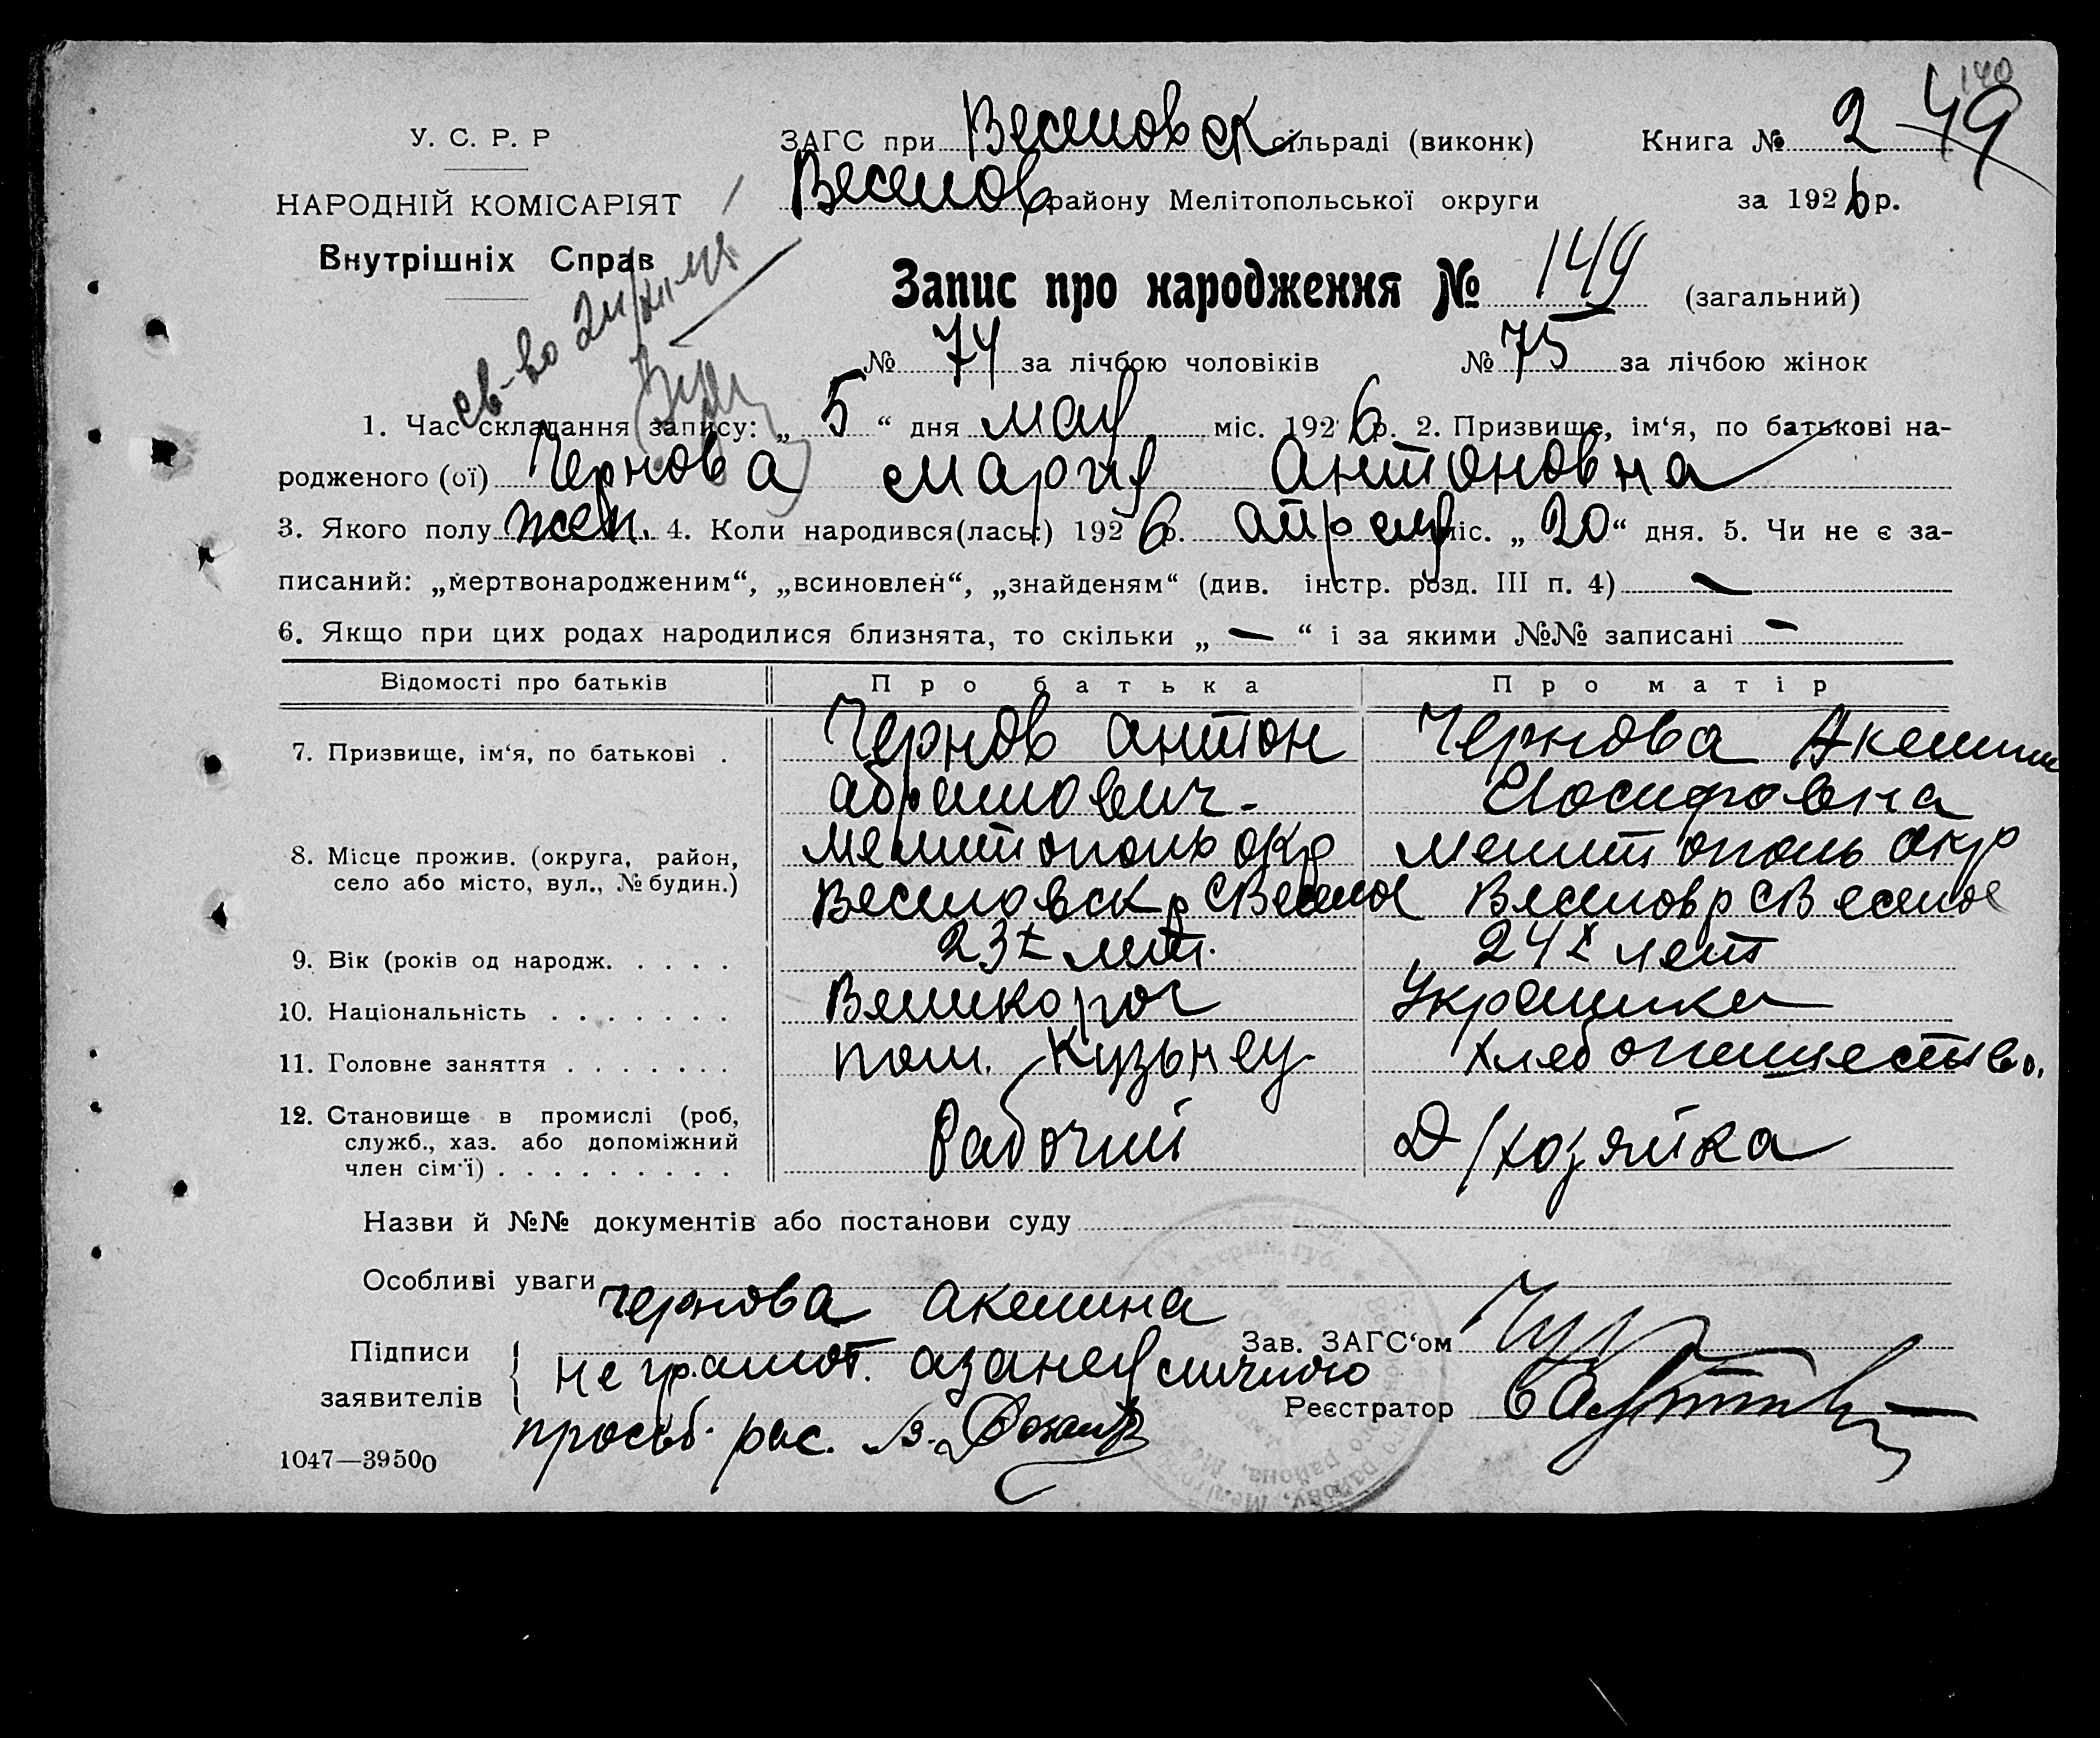 140
У. С. Р. Р
ЗАГС при Веселовск сільраді (виконк)
Книга № 2 49
НАРОДНІЙ КОМІСАРІЯТ
Веселов району Мелітопольської округи
за 1926 р.
Внутрішніх Справ
Запис про народження № 149 (загальний)
№ 74 за лічбою чоловіків № 75 за лічбою жінок
св-во
1. Час складання запису: „ 5 “ дня мая міс. 1926 р. 2. Призвище, ім‘я, по батькові на-
родженого (ої) Чернова Мария Антоновна
3. Якого полу жен. 4. Коли народився(лась:) 1926 р. апреля міс. „ 20 “ дня. 5. Чи не є за-
писаний: „мертвонародженим“, „всиновлен“, „знайденям“ (див. інстр. розд. III п. 4) —
6. Якщо при цих родах народилися близнята, то скільки „ — “ і за якими №№ записані —
Відомості про батьків Про батька Про матір
7. Призвище, ім‘я, по батькові . Чернов Антон Чернова
Иосифовна
8. Місце прожив. (округа, район, Мелитополь окр Мелитополь окр
село або місто, вул., № будин.) Веселовск р С Веселое Веселов р С Веселое
9. Вік (років од народж. . . . . 23х лет. 24х лет
10. Національність . . . . . . . Великорос Украинка
11. Головне заняття . . . . . . . пом. Кузьнец Хлебопашество.
12. Становище в промислі (роб, Рабочий Д/хозяйка
служб., хаз. або допоміжний
член сім‘ї) . . . . . . . . .
Назви й №№ документів або постанови суду
Особливі уваги
Чернова Акелина
Підписи
заявителів
Зав. ЗАГС‘ом
не грамот. а за нея личною
Реєстратор
просьб. рас.
1047—39500